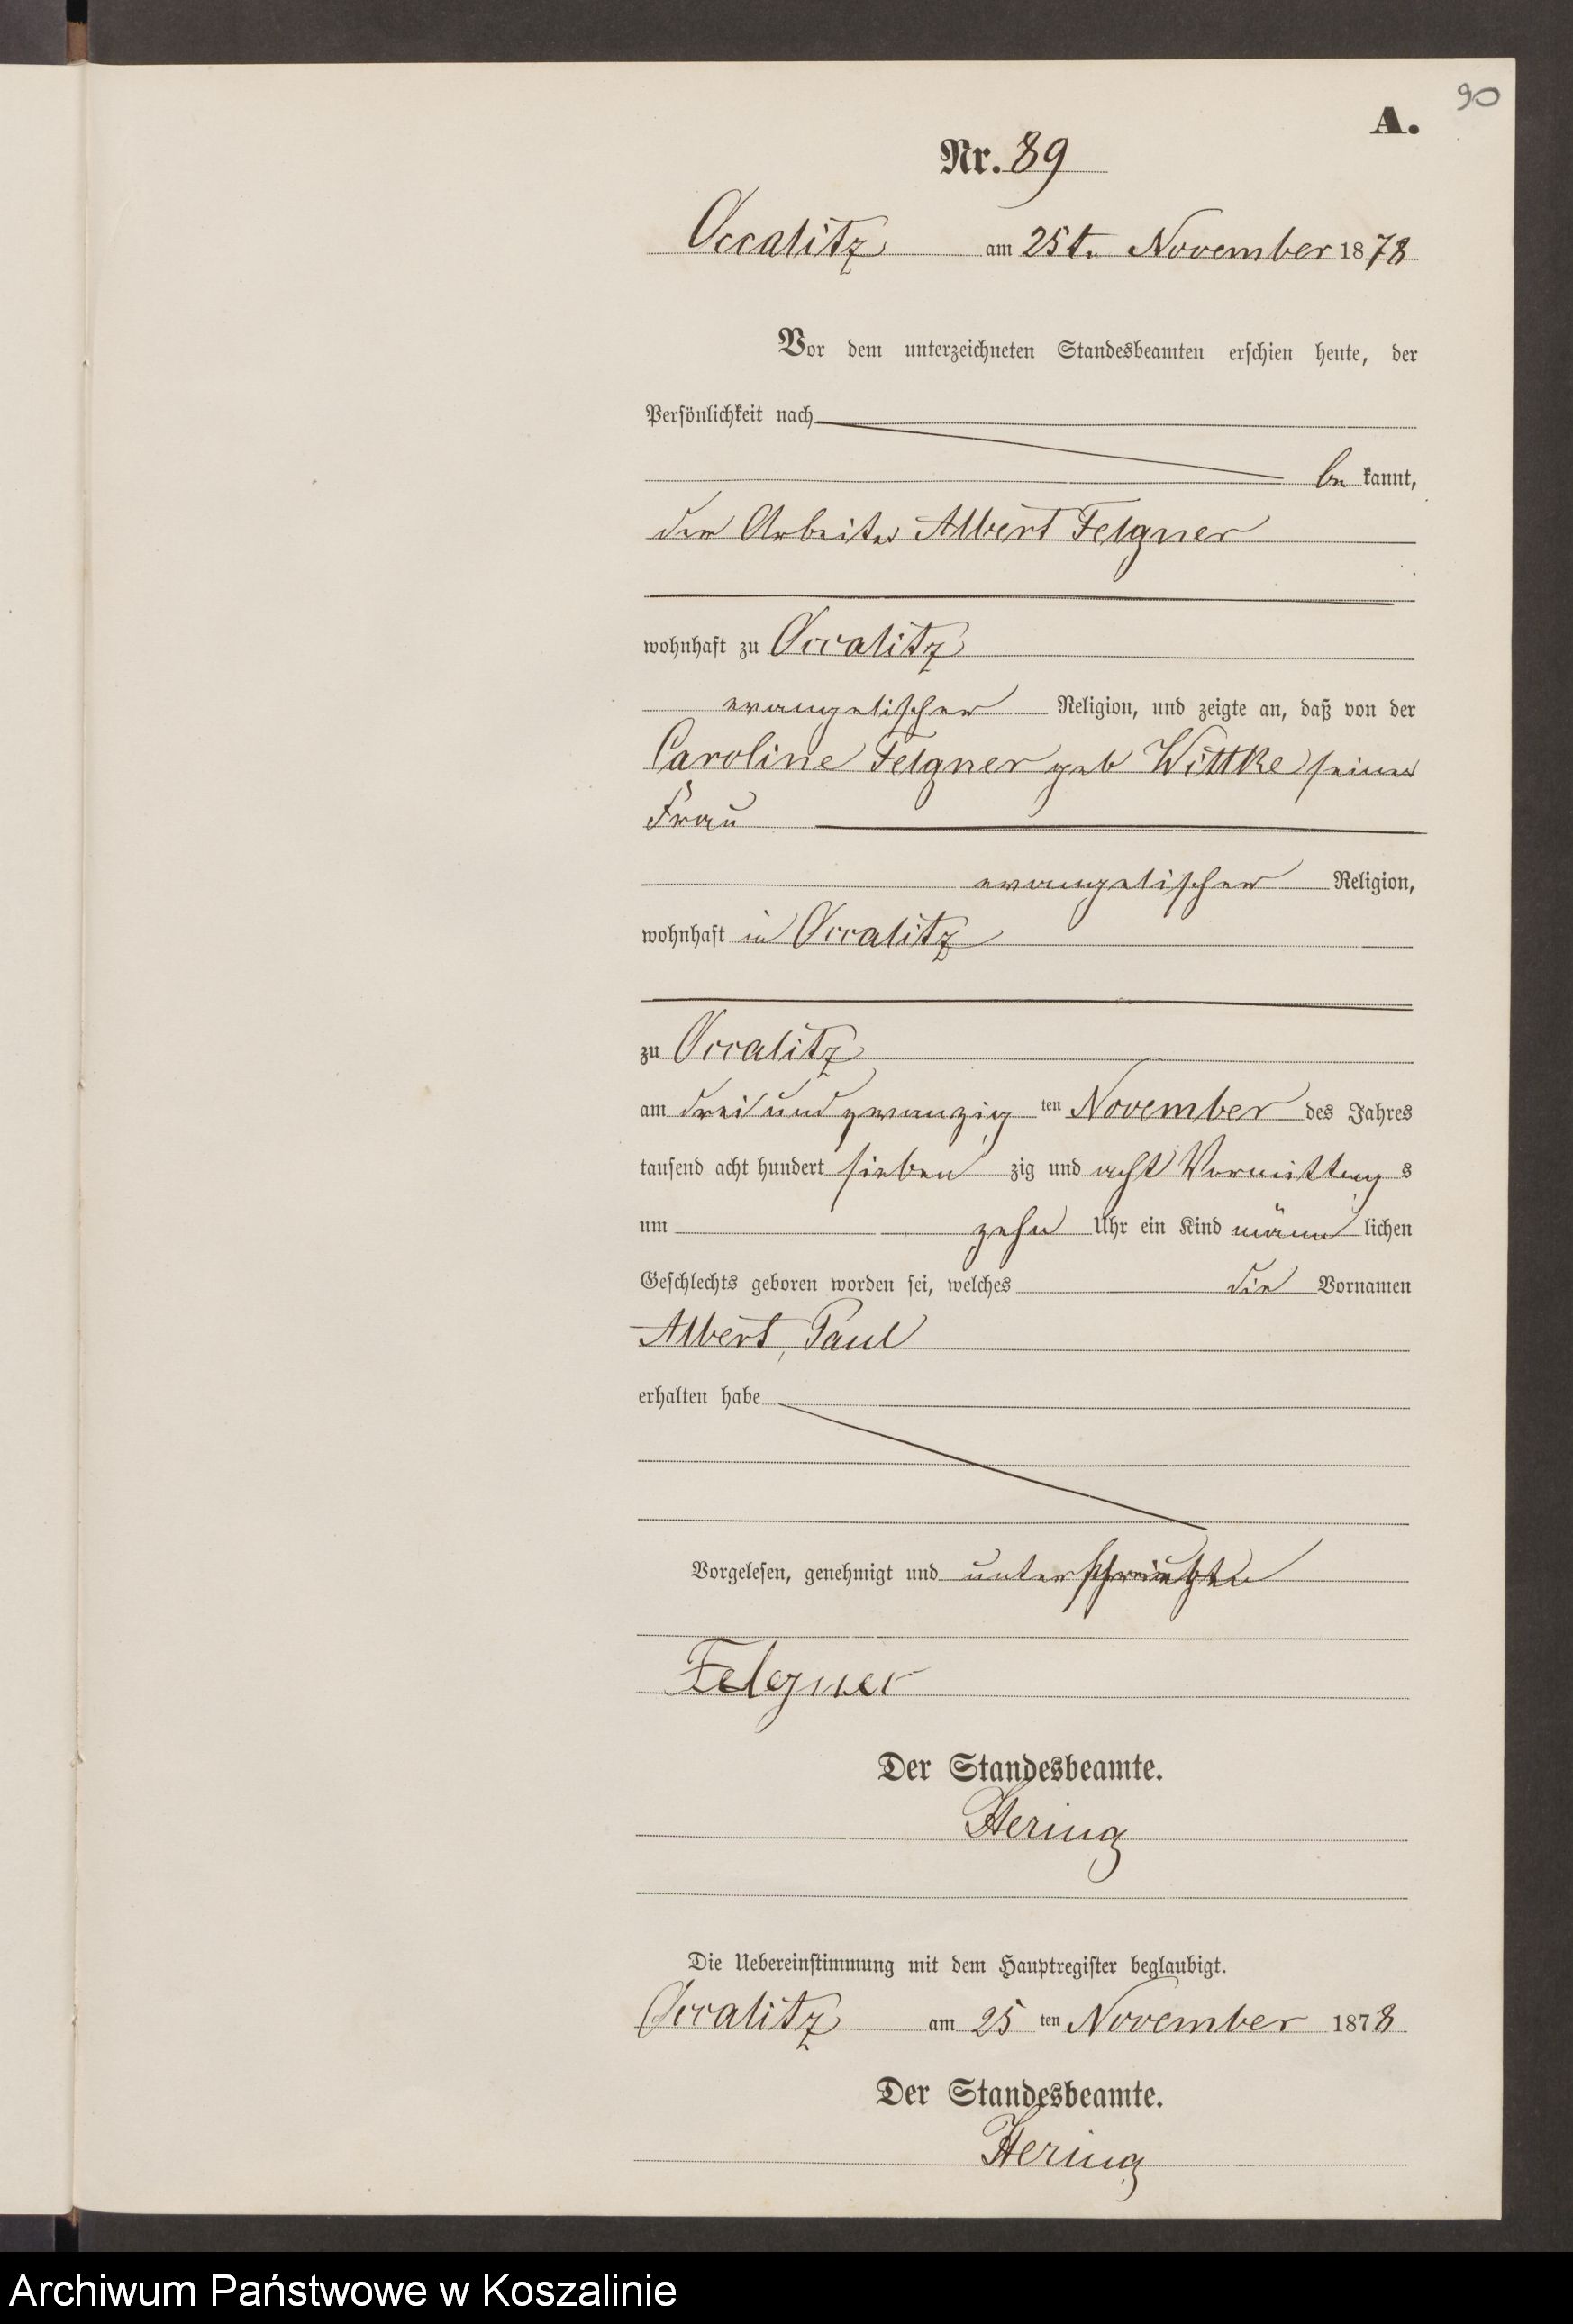 90
A.
Nr. 89
Occalitz am 25t. November 1878
Vor dem unterzeichneten Standesbeamten erschien heute, der
Persönlichkeit nach
be kannt,
der Arbeiter Albert Felgner
wohnhaft zu Occalitz
evangelischer Religion, und zeigte an, daß von der
Caroline Felgner geb Wittke seiner
Frau
evangelischer Religion,
wohnhaft in Occalitz
zu Occalitz
am drei und zwanzig ten November des Jahres
tausend acht hundert sieben zig und acht Vormittag s
um zehn Uhr ein Kind männ lichen
Geschlechts geboren worden sei, welches die Vornamen
Albert, Paul
erhalten habe
Vorgelesen, genehmigt und
Felgner
Der Standesbeamte.
Hering
Die Uebereinstimmung mit dem Hauptregister beglaubigt.
Occalitz am 25 ten November 1878
Der Standesbeamte.
Hering
Archiwum Państwowe w Koszalinie